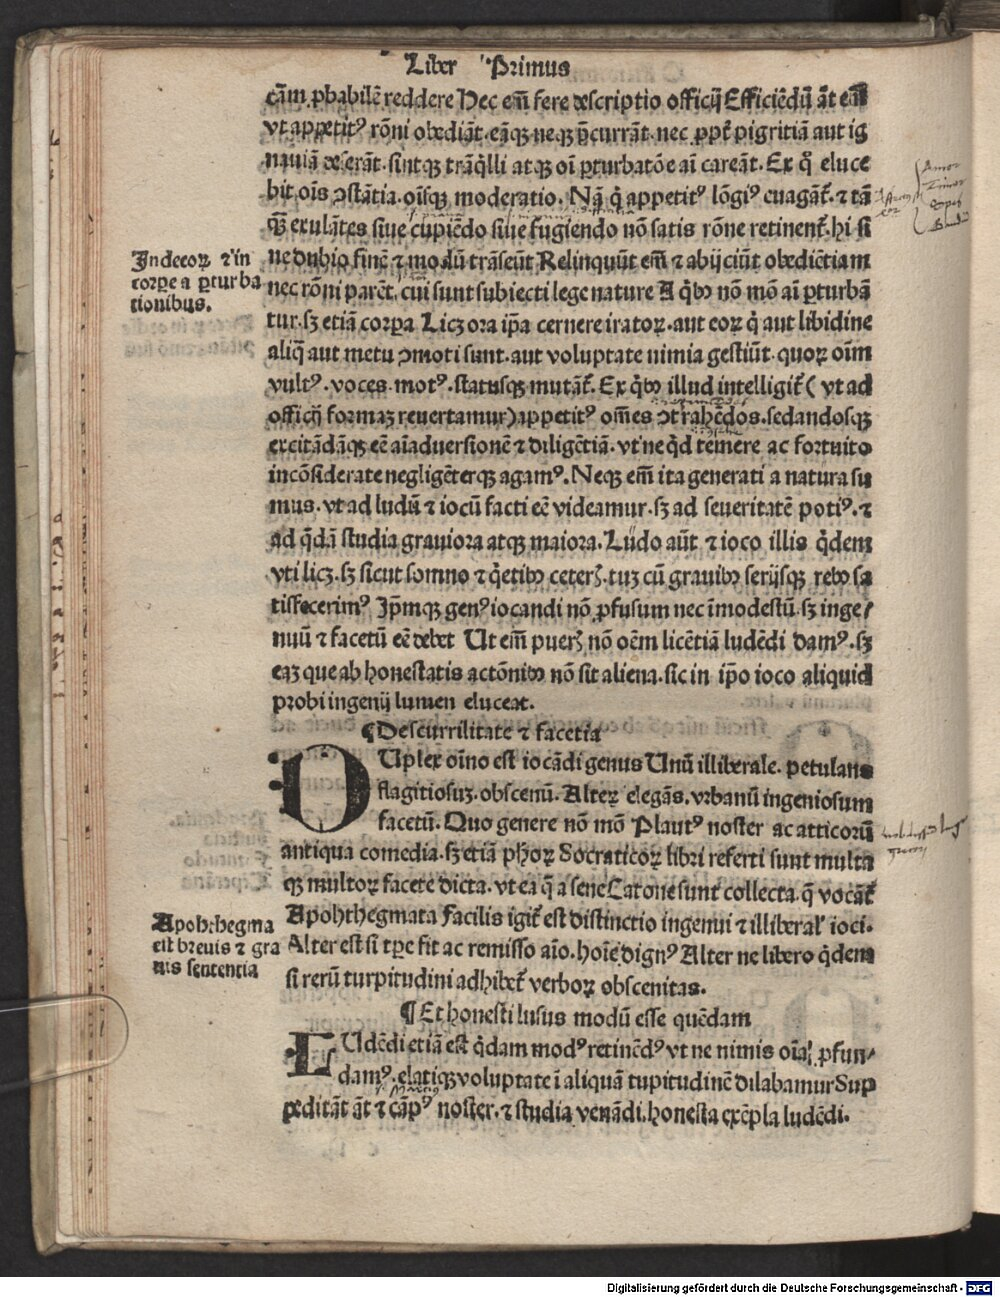 Liber Primus
cām ꝓbabilē reddere Hec em̄ fere descriptio officij Efficiēdū āt est
vt appetitꝰ rōni obediāt. eāqꝫ neqꝫ p̄currāt. nec ꝓpt̄ pigritiā aut ig
nauiā deserāt. sintqꝫ trāq̇lli atqꝫ oī ꝑturbatōe aī careāt. Ex qͦ eluce
bit oīs ꝯstātia. oīsqꝫ moderatio. Nā q̇ appetitꝰ lōgiꝰ euagāt̄. ⁊ tā
qͣꝫ exulātes siue cupiēdo siue fugiendo nō satis rōne retinent̄. hi si
ne dubio finē ⁊ modū trāseūt Relinquūt em̄ ⁊ abijciūt obediētiam
nec rōni parēt. cui sunt subiecti lege nature A q̇bꝰ nō mō aī ꝑturbā
tur. sꝫ etiā corꝑa Licꝫ ora ip̄a cernere iratoꝝ. aut eoꝝ q̇ aut libidine
aliq̄ aut metu ꝯmoti sunt. aut voluptate nimia gestiūt. quoꝝ oīm
vultꝰ. voces. motꝰ. statusqꝫ mutāt̄. Ex q̇bꝰ illud intelligit̄ ( vt ad
officij formaꝫ reuertamur) appetitꝰ om̄es ꝯtrahēdos. sedandosqꝫ
excitādāqꝫ eē aīaduersionē ⁊ diligētiā. vt ne qͥd temere ac fortuito
incōsiderate negligēterqꝫ agamꝰ. Neqꝫ em̄ ita generati a natura su
mus. vt ad ludū ⁊ iocū facti eē videamur. sꝫ ad seueritatē potiꝰ. ⁊
ad q̇dā studia grauiora atqꝫ maiora. Ludo aūt ⁊ ioco illis q̇dem
vti licꝫ. sꝫ sicut somno ⁊ q̇etibꝰ ceterꝭ. tuꝫ cū grauibꝰ serijsqꝫ rebꝰ sa
tisfecerimꝰ Ip̄mqꝫ genꝰ iocandi nō ꝓfusum nec īmodestū. sꝫ inge/
nuū ⁊ facetū eē debet Ut em̄ puerꝭ nō oēm licētiā ludēdi damꝰ. sꝫ
eaꝫ que ab honestatis actōnibꝰ nō sit aliena. sic in ip̄o ioco aliquid
probi ingenij lumen eluceat.
¶ De scurrilitate ⁊ facetia
DUplex oīno est iocādi genus Unū illiberale. petulans
flagitiosuꝫ. obscenū. Alteꝝ elegās. vrbanū ingeniosum
facetū. Quo genere nō mō Plautꝰ noster ac atticorū
antiqua comedia. sꝫ etiā ph̄oꝝ Socraticoꝝ libri referti sunt multa
qꝫ multoꝝ facete dicta. vt ea q̄ a sene Catone sunt collecta. q̄ vocāt̄
Apohthegmata Facilis igit̄ est distinctio ingenui ⁊ illiberal' ioci.
Alter est si tꝑe fit ac remisso aīo. hoīe dignꝰ Alter ne libero q̇dem
si rerū turpitudini adhibet̄ verboꝝ obscenitas.
¶ Et honesti lusus modū esse quēdam
LUdēdi etiā est q̇dam modꝰ retinēdꝰ vt ne nimis oīa ꝓfun/
damꝰ. elatiqꝫ voluptate ī aliquā tupitudinē dilabamur Sup
peditāt āt ⁊ cāpꝰ noster. ⁊ studia venādi. honesta exēpla ludēdi.
Indecoꝝ ⁊ in
torpea ꝑturba
tionibus.
Apohthegma
est breuis ⁊ gra
uis sententia
Amor
Timor
Digitalisierung gefördert durch die Deutsche Forschungsgemeinschaft - DFG